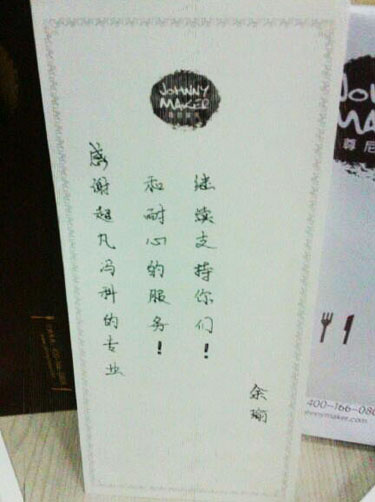 JOHNNY
MAKER
感谢超凡冯科的专业
和耐心的服务!
继续支持你们!
余瑜
JOHN
MA
尊尼
400-166-080
nnymaker.com